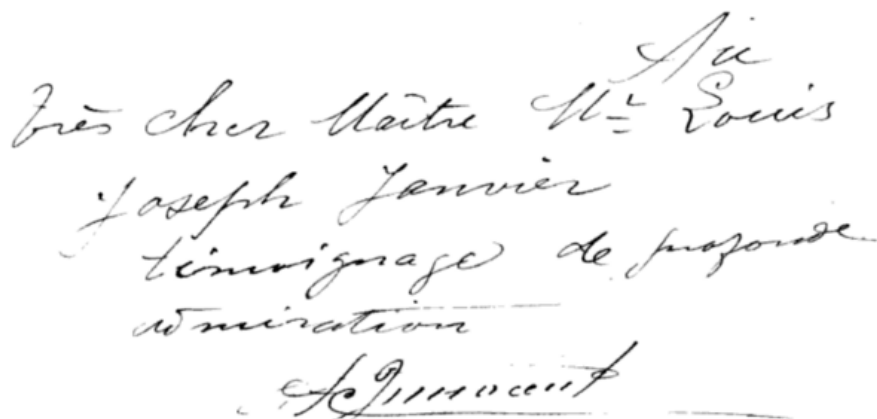 Au
très cher Maître Mr Louis
Joseph Janvier
témoignage de profonde
admiration